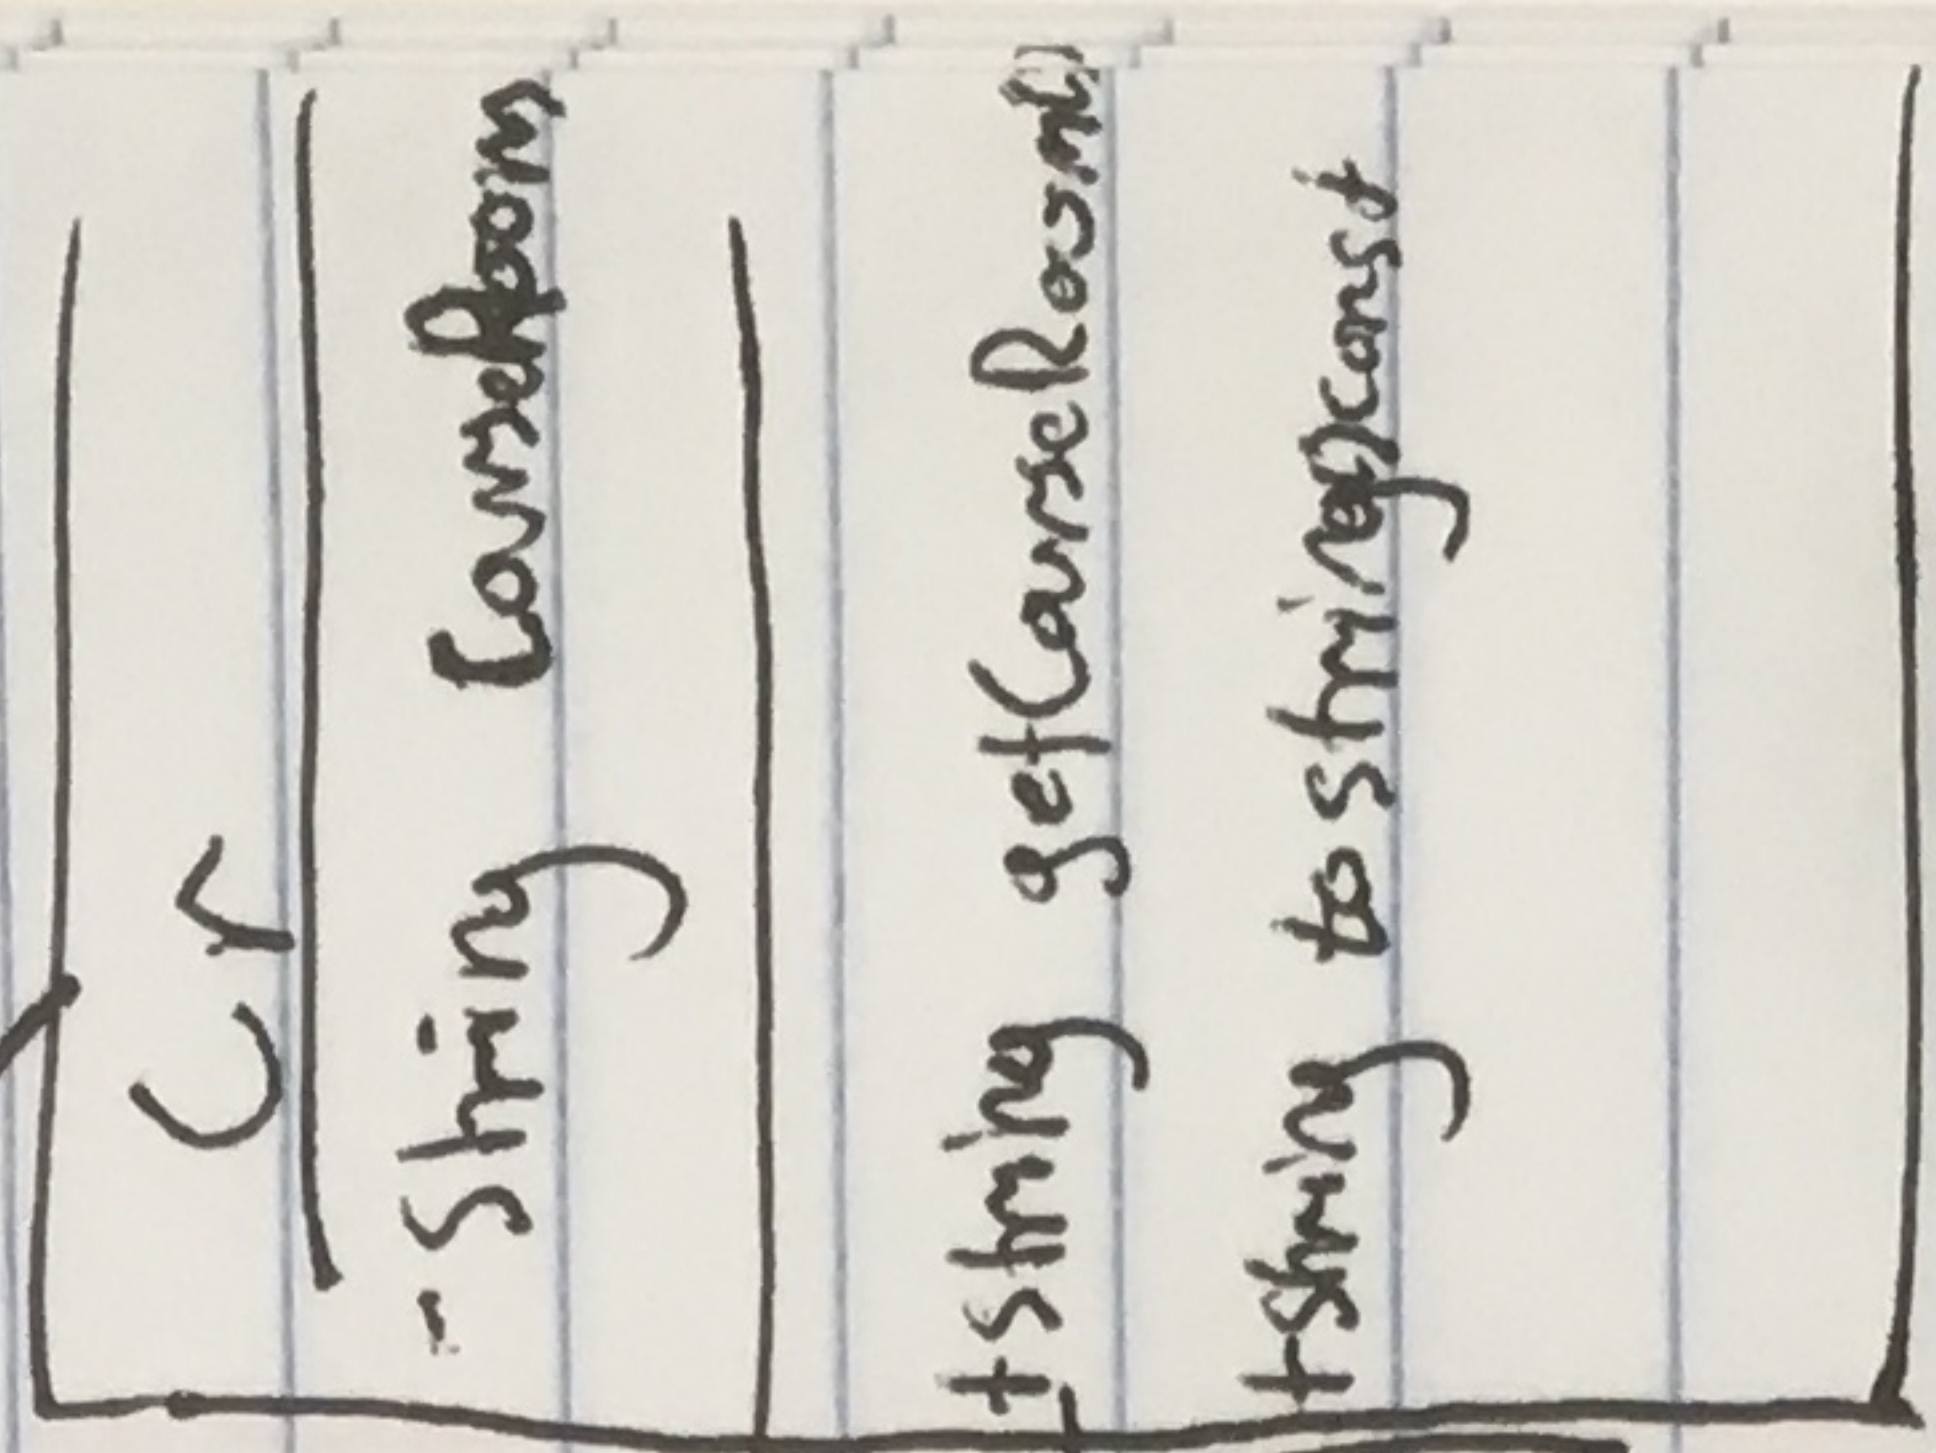 Cr
-String CourseRoom
+String getCourseRoom()
+String toString()const